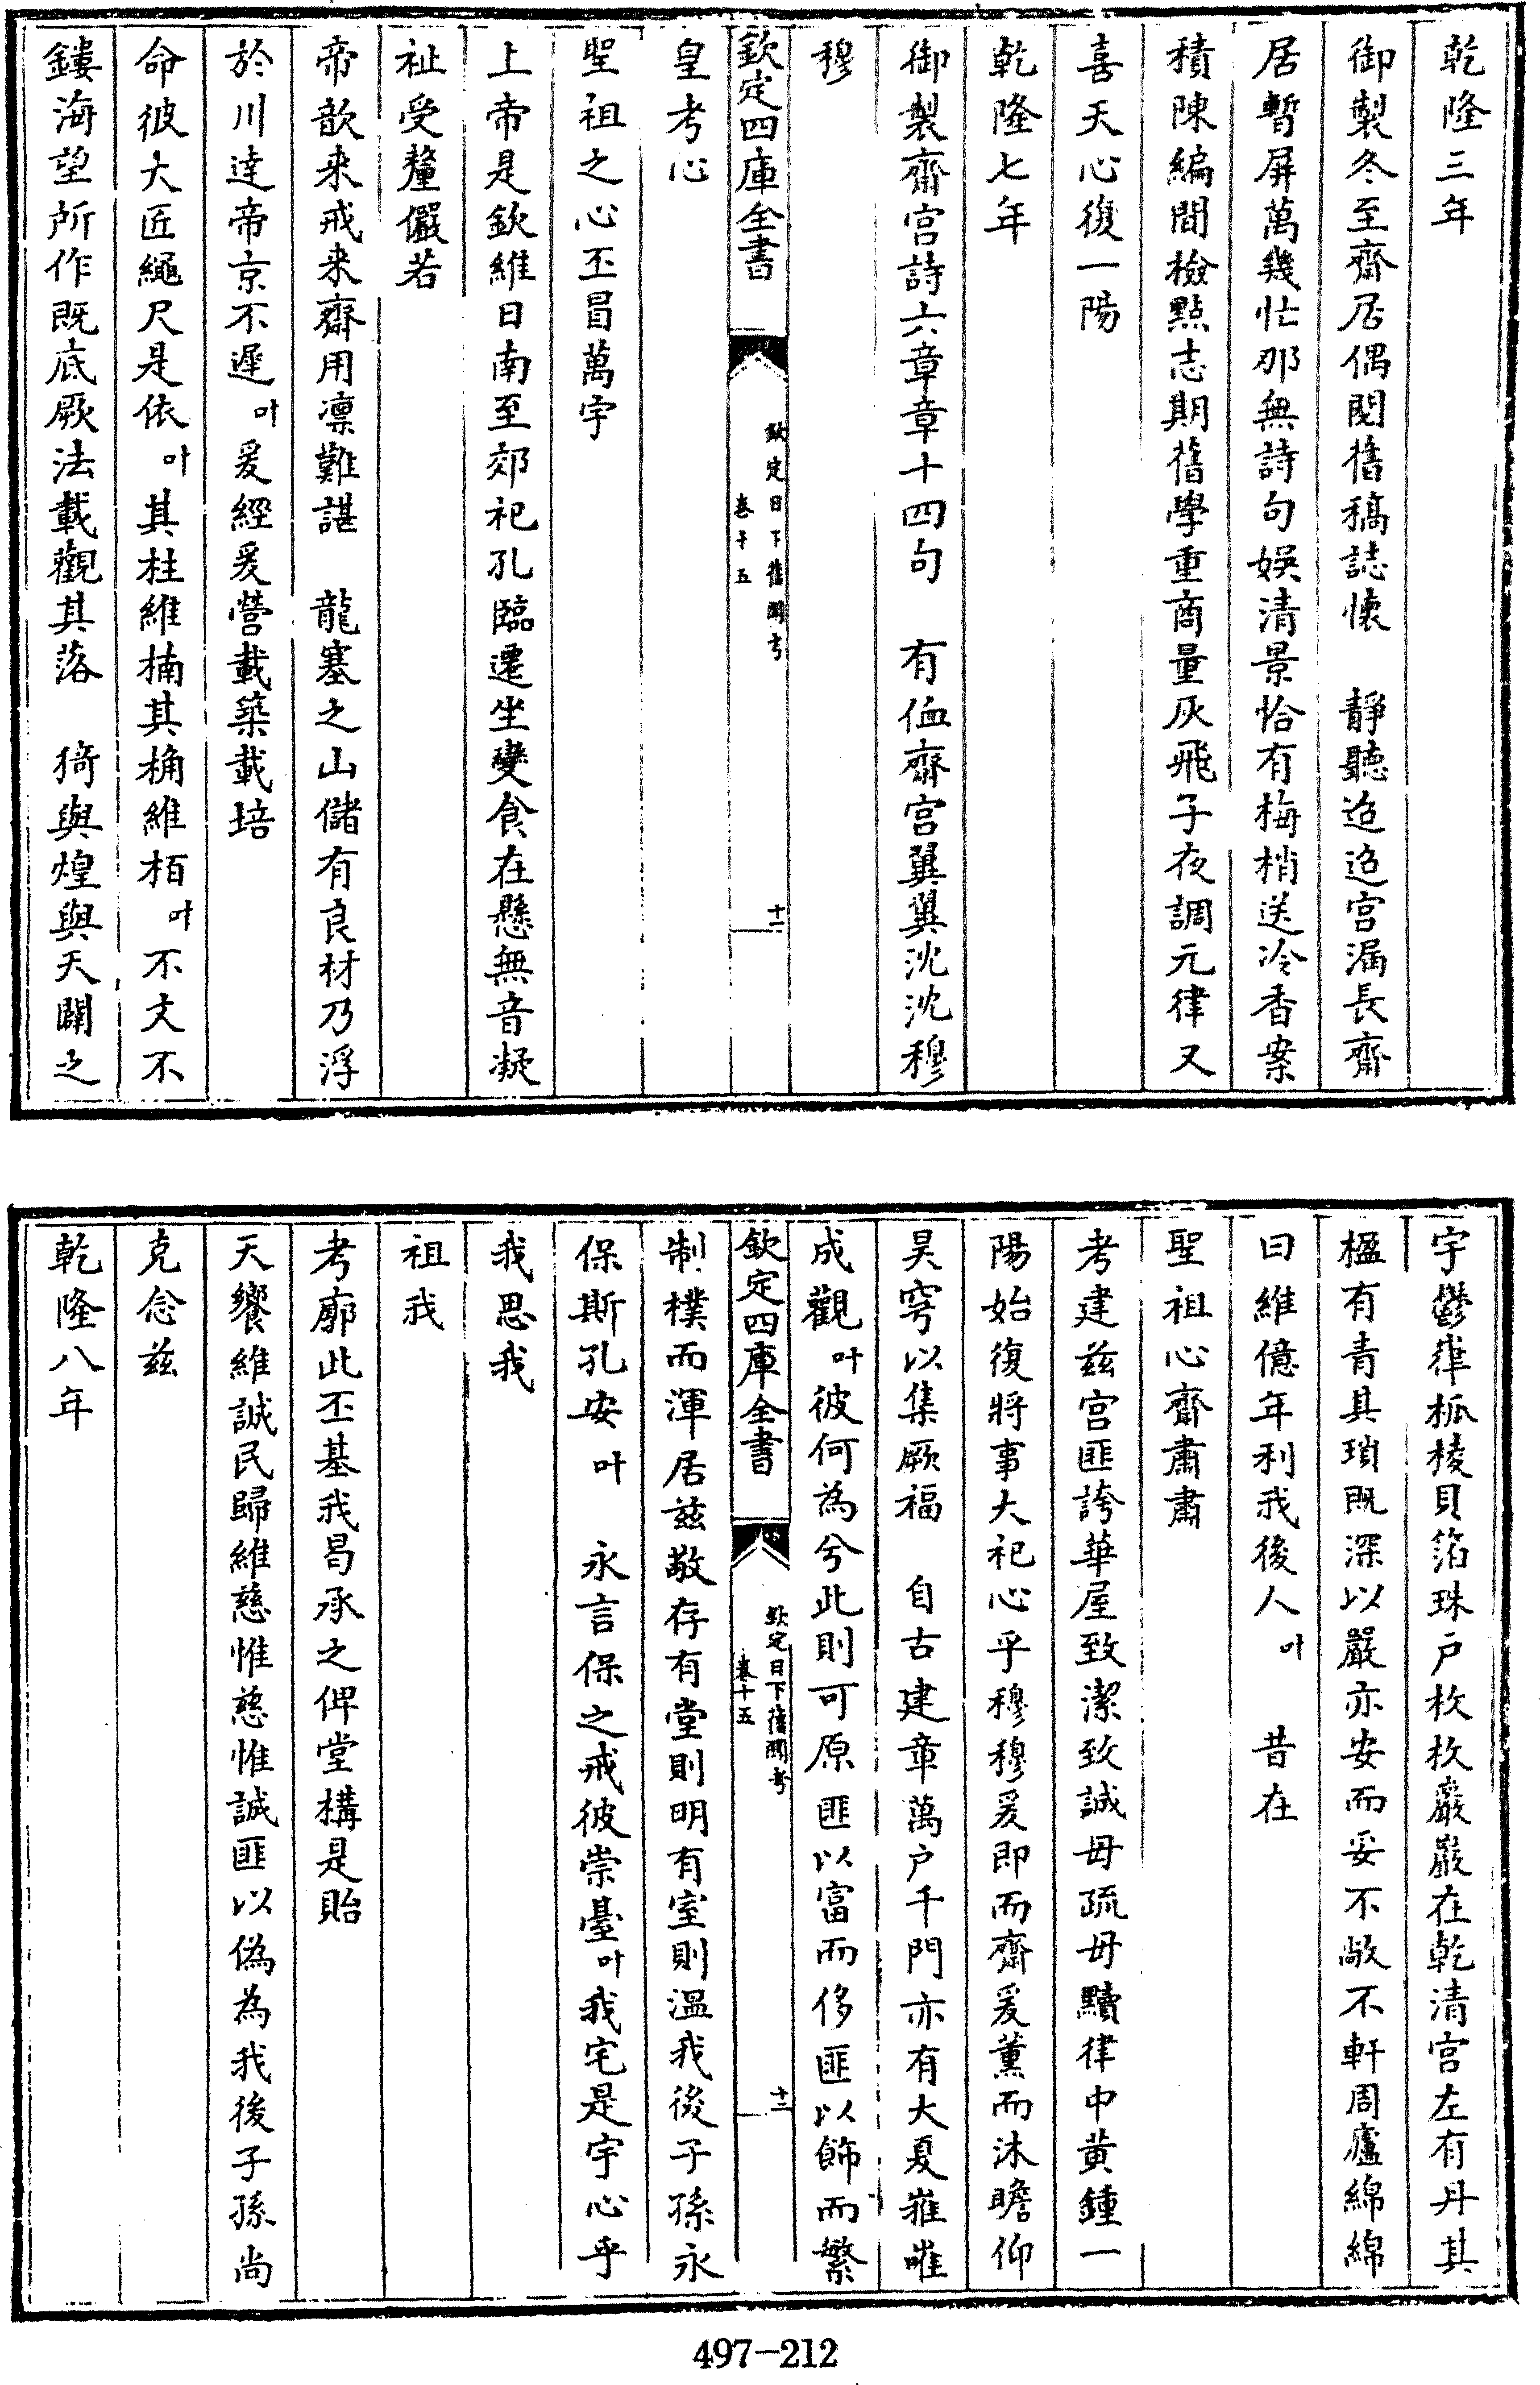 乾隆三年
御製冬至齋居偶閱舊稿誌懷　靜聽迢迢宫漏長齋
居暫屏萬幾忙那無詩句娛清景恰有梅梢送冷香案
積陳編閒檢點志期舊學重商量灰飛子夜調元律又
喜天心復一陽
乾隆七年
御製齋宫詩六章章十四句　有侐齋宫翼翼沈沈穆
穆
欽定四庫全書
欽定日下舊聞考
卷十五
十一
皇考心
聖祖之心丕冒萬宇
上帝是欽維日南至郊祀孔臨遷坐變食在懸無音凝
祉受釐儼若
帝歆來戒來齋用凛難諶　龍塞之山儲有良材乃浮
於川達帝京不遲叶爰經爰營載築載培
命彼大匠繩尺是依叶其柱維楠其桷維栢叶不丈不
鏤海望所作既底厥法載觀其落　猗與煌與天闢之
宇鬱嵂柧棱貝箔珠户枚枚巖巖在乾清宫左有丹其
楹有青其瑣既深以嚴亦安而妥不敞不軒周廬綿綿
曰維億年利我後人叶　昔在
聖祖心齋肅肅
考建兹宫匪誇華屋致潔致誠毋疏毋黷律中黄鍾一
陽始復將事大祀心乎穆穆爰即而齋爰薰而沐瞻仰
昊穹以集厥福　自古建章萬户千門亦有大夏嶊嶉
成觀叶彼何為兮此則可原匪以富而侈匪以飾而繁
欽定四庫全書
欽定日下舊聞考
卷十五
十二
制樸而渾居兹敬存有堂則明有室則温我後子孫永
保斯孔安叶　永言保之戒彼崇臺叶我宅是宇心乎
我思我
祖我
考廓此丕基我曷承之俾堂構是貽
天饗維誠民歸維慈惟慈惟誠匪以偽為我後子孫尚
克念兹
乾隆八年
497-212